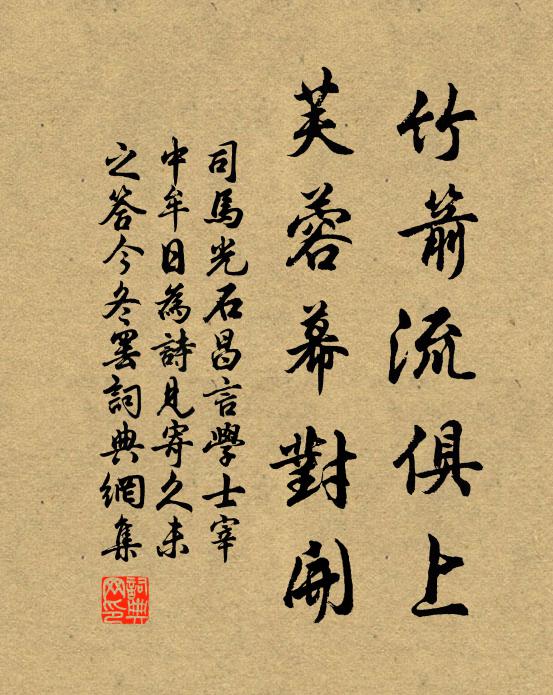 竹箭流俱上
芙蓉幕對開
司馬光石昌言學士宰
中牟日為詩見寄久未
之答今冬罷詞典網集
詞典網印